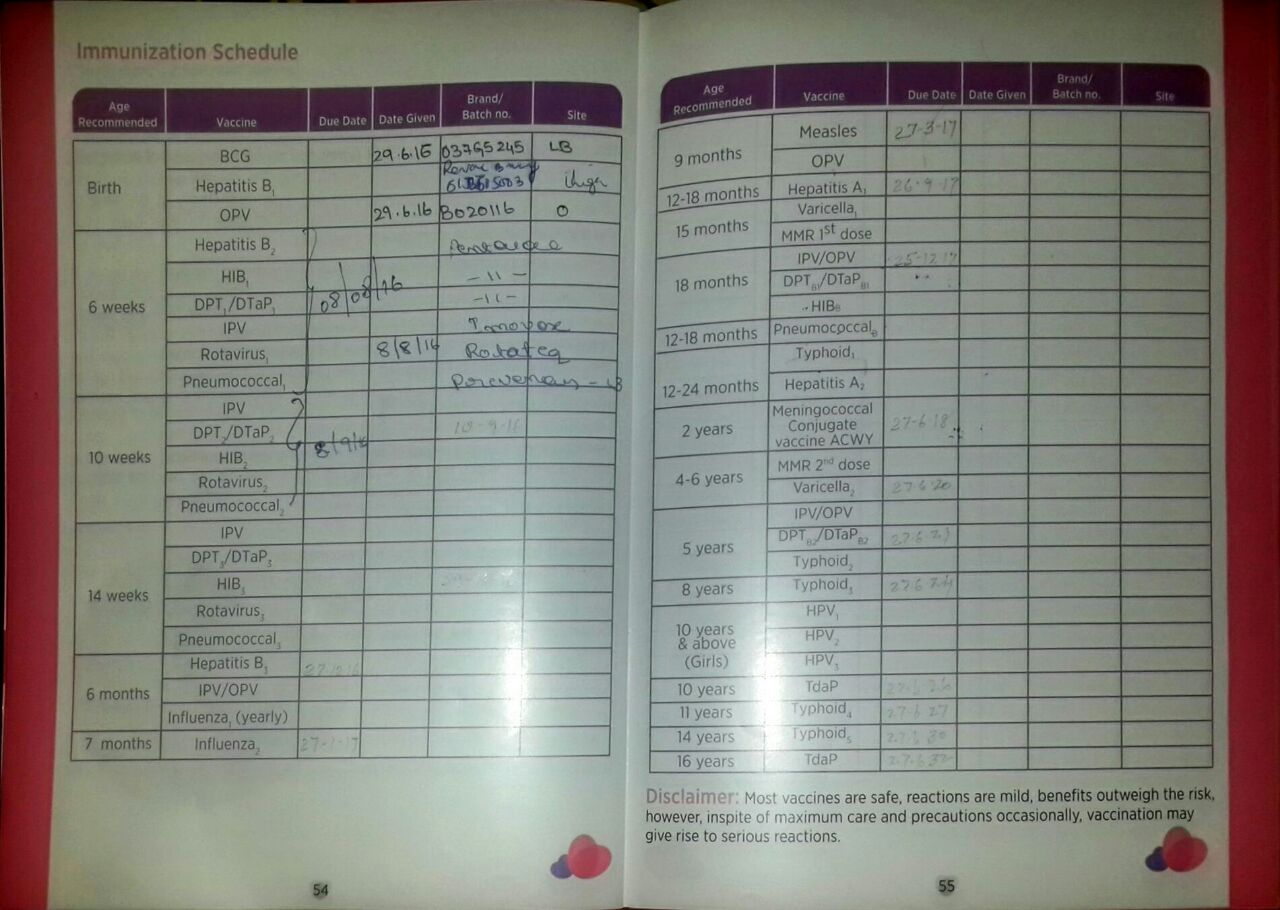 Immunization Schedule
Age Recommended Vaccine Due Date Date Given Brand/ Batch no. Site
Birth
BCG 29.6.16 03765245 LB
Hepatitis B1 thigh
OPV 29.6.16 B020116 O
6 weeks
Hepatitis B2
HIB1 -11-
DPT1/DTaP1 08/08/16 -11-
IPV Imovax
Rotavirus1 8/8/16 Rotateq
Pneumococcal1
10 weeks
IPV
DPT2/DTaP2
HIB2 8/9/16
Rotavirus2
Pneumococcal2
14 weeks
IPV
DPT3/DTaP3
HIB3
Rotavirus3
Pneumococcal3
6 months
Hepatitis B3 27-12-16
IPV/OPV
Influenza1 (yearly)
7 months Influenza2 27-1-17
54
Age Recommended Vaccine Due Date Date Given Brand/ Batch no. Site
9 months
Measles 27-3-17
OPV
12-18 months Hepatitis A1 26-9-17
15 months
Varicella1
MMR 1st dose
18 months
IPV/OPV 25-12-17
DPTB1/DTaPB1
HIBB
12-18 months PneumococcalB
12-24 months
Typhoid1
Hepatitis A2
2 years
Meningococcal
Conjugate
vaccine ACWY 27-6-18
4-6 years
MMR 2nd dose
Varicella2 27 6 20
5 years
IPV/OPV
DPTB2/DTaPB2
Typhoid2
8 years Typhoid3 27.6.24
10 years
& above
(Girls)
HPV1
HPV2
HPV3
10 years TdaP 27.6.26
11 years Typhoid4 27.6.27
14 years Typhoid5 27.6.30
16 years TdaP 27.6.32
Disclaimer: Most vaccines are safe, reactions are mild, benefits outweigh the risk,
however, inspite of maximum care and precautions occasionally, vaccination may
give rise to serious reactions.
55